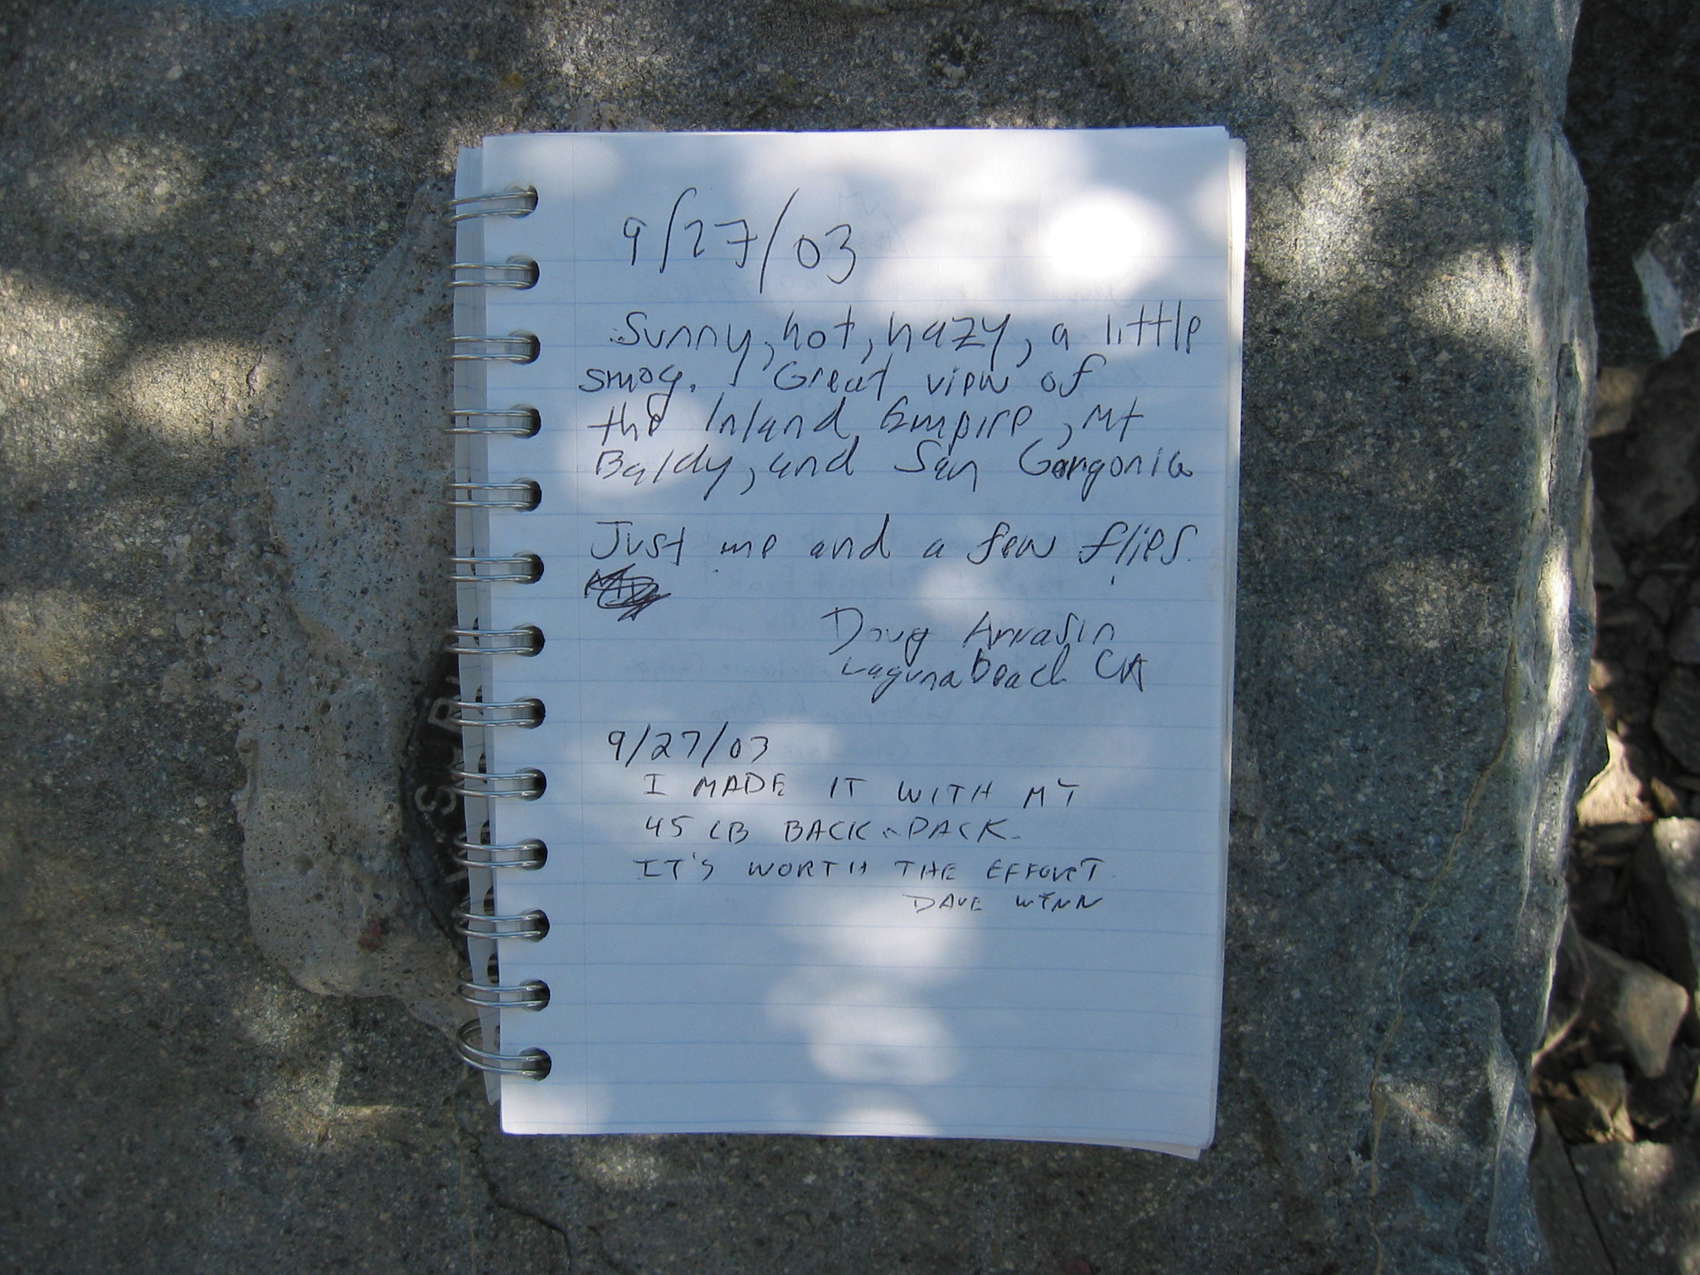 9/27/03
Sunny, hot, hazy, a little
smog. Great view of
the Inland Empire, Mt
Baldy, and San Gorgonio
Just me and a few flies.
Doug
Laguna Beach CA
9/27/03
I MADE IT WITH MY
45 LB BACK-PACK.
IT'S WORTH THE EFFORT.
DAVE WINN